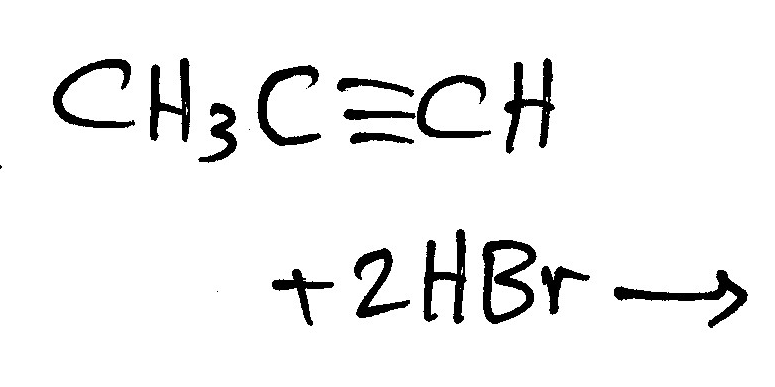 CH₃C≡CH
+2HBr⟶